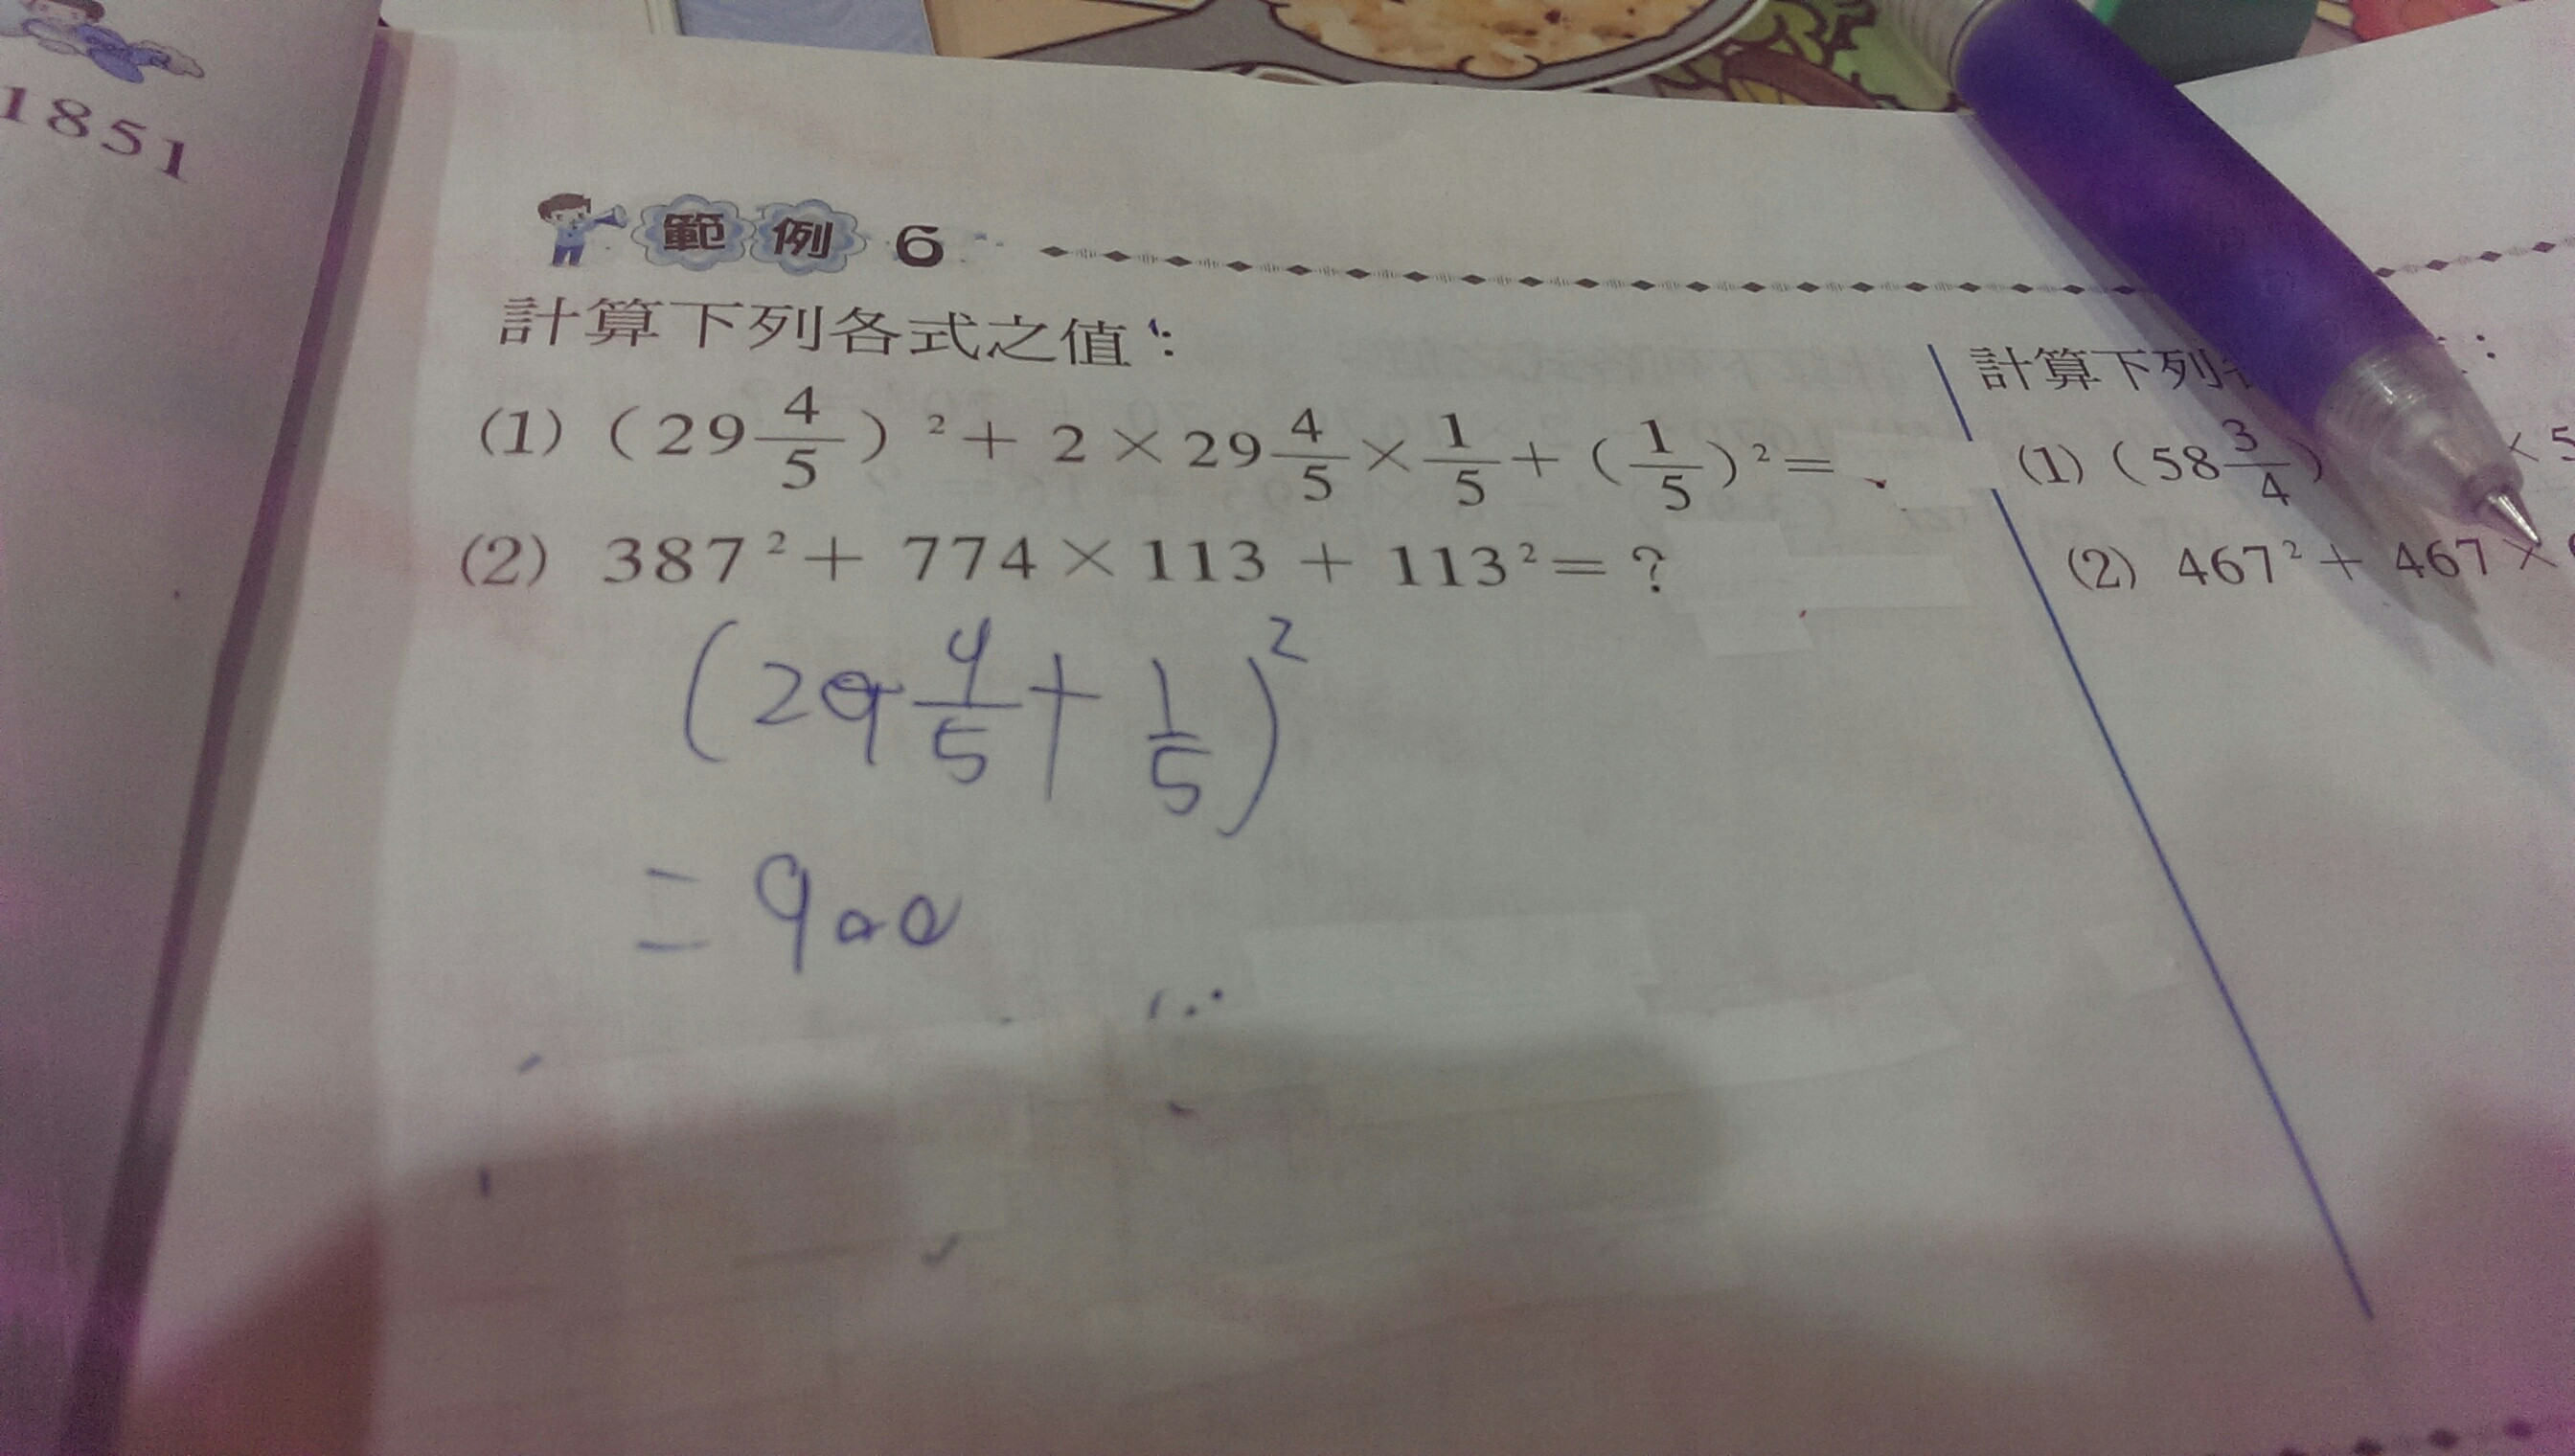 1851
範例 6
計算下列各式之值：
(1) (29 4/5)² + 2 × 29 4/5 × 1/5 + (1/5)² =
(2) 387² + 774 × 113 + 113² = ?
(29 4/5 + 1/5)²
= 900
計算下列
:
(1) (58 3/4)
× 5
(2) 467² + 467 ×